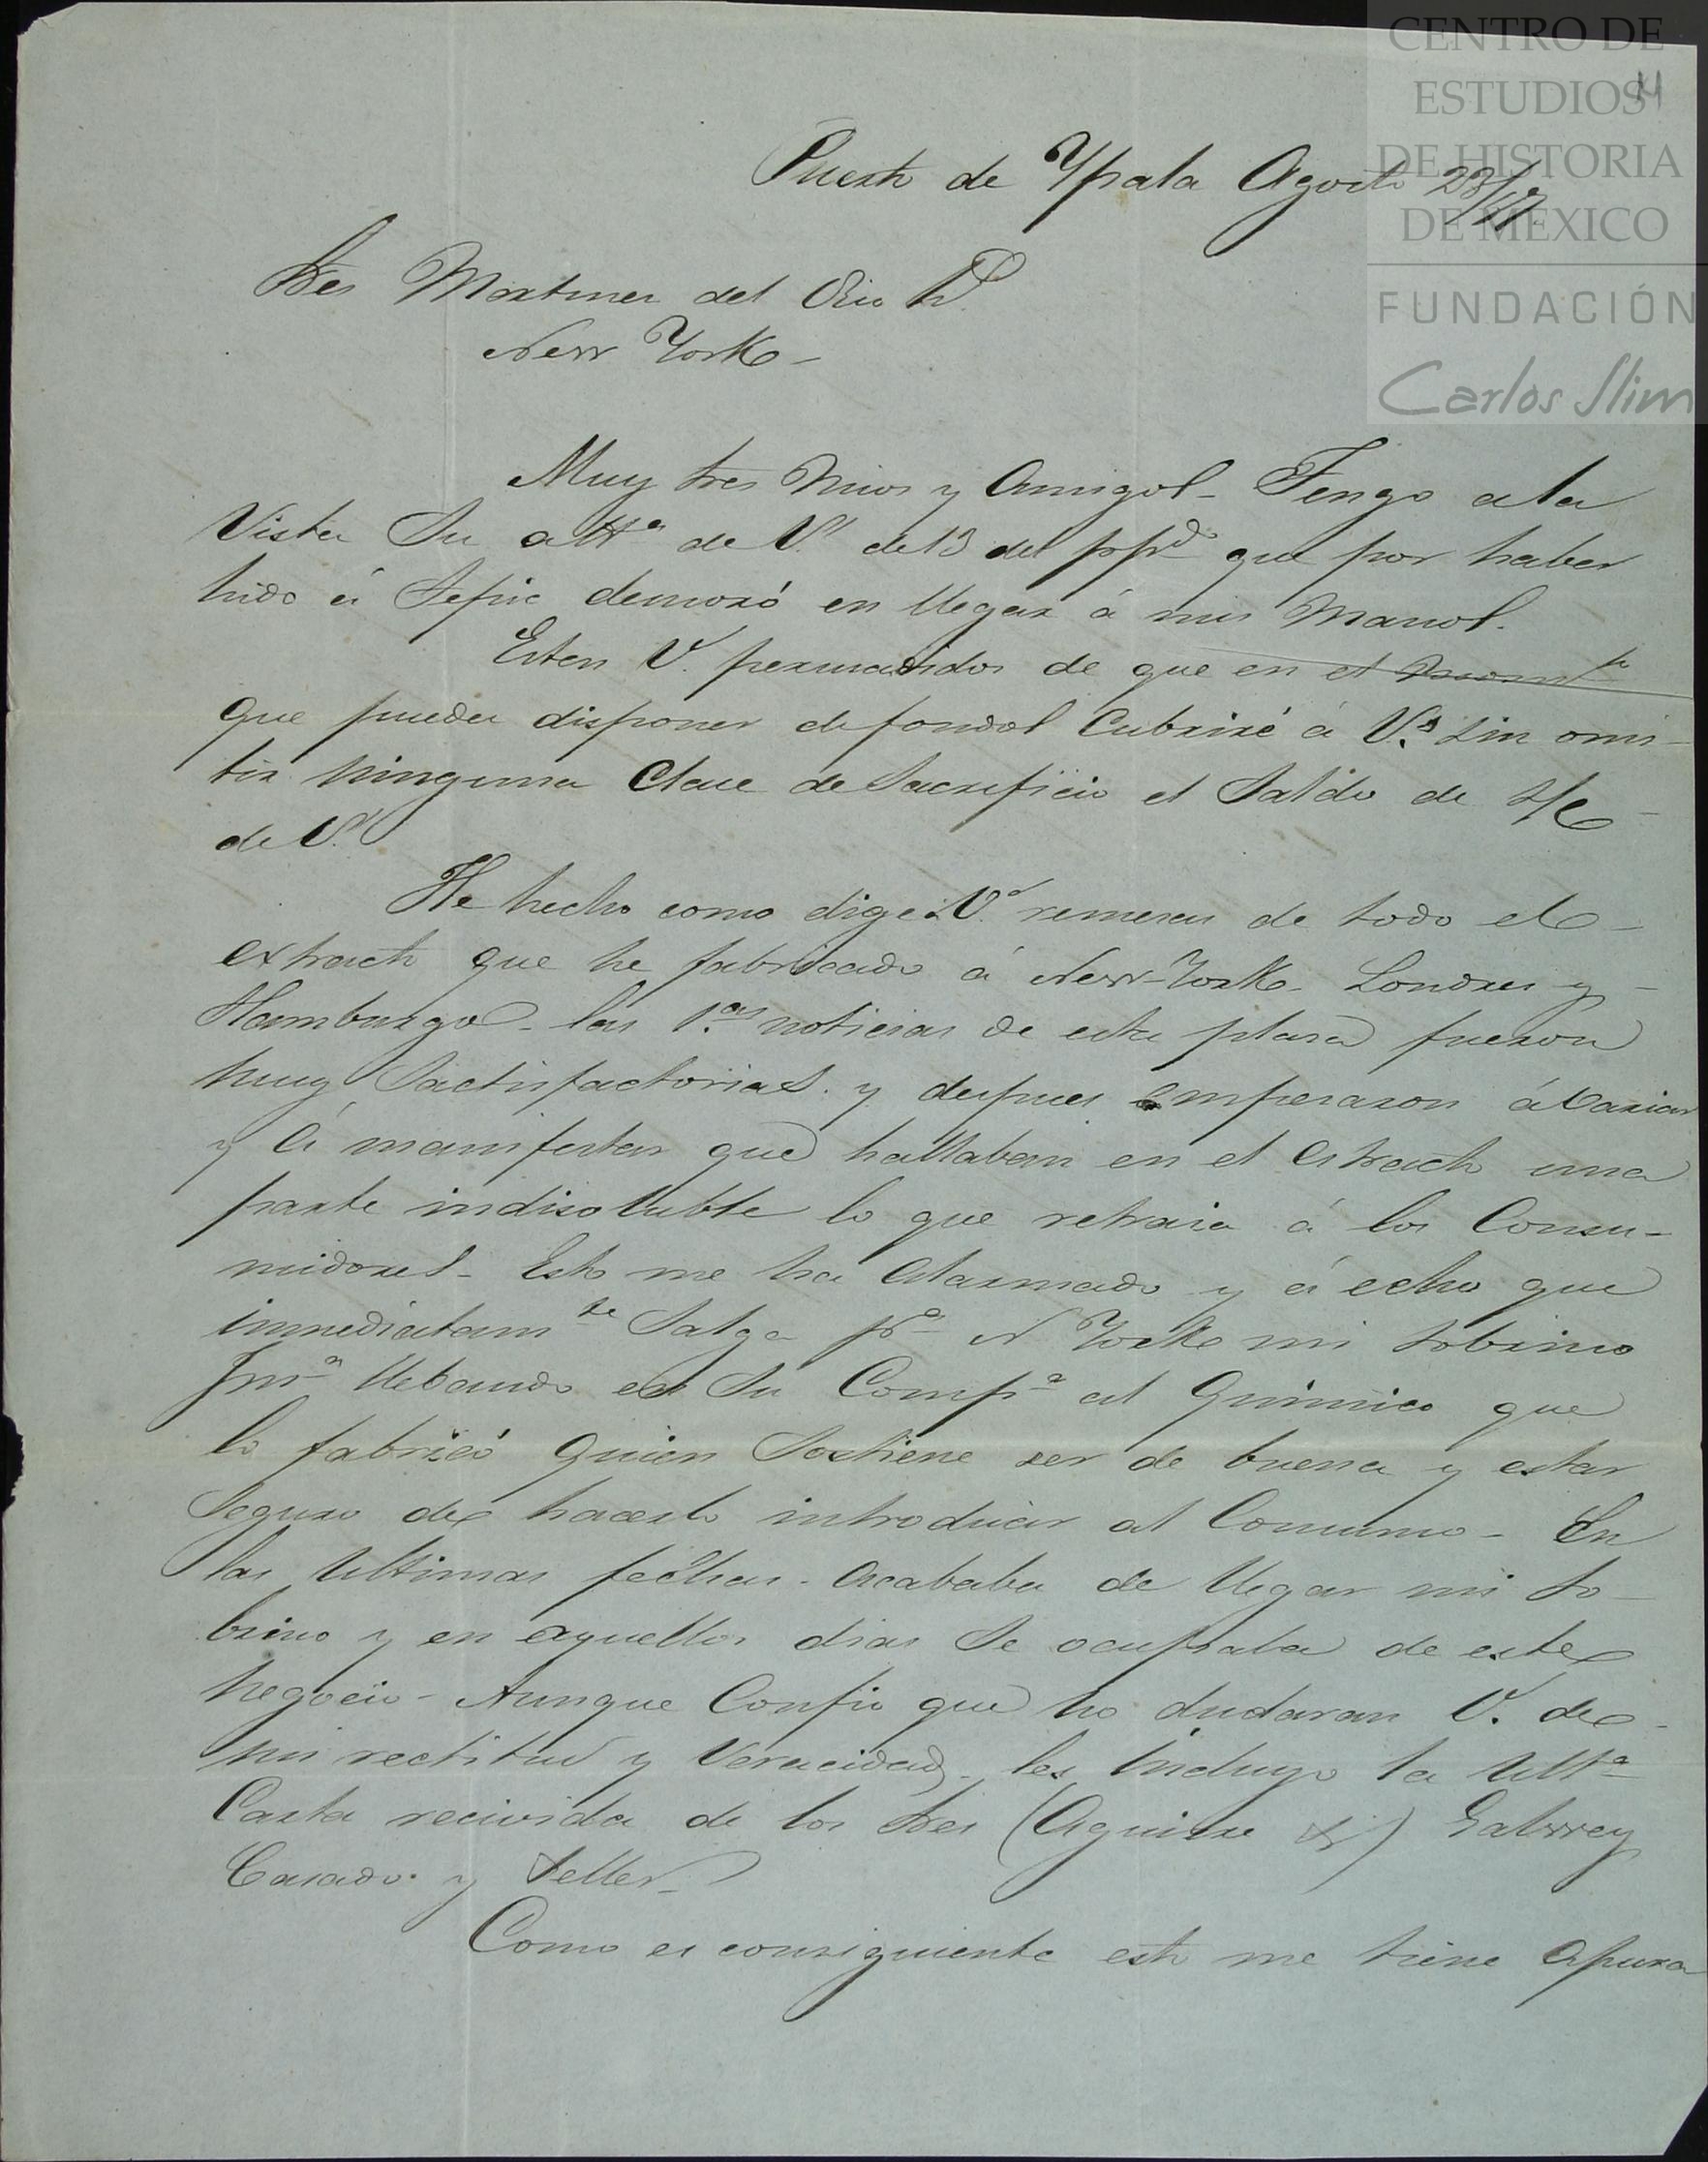 CENTRO DE
ESTUDIOS
DE HISTORIA
DE MEXICO
FUNDACIÓN
Carlos Slim
Puerto de Ypala Agosto 23/
Sres Martinez del Rio hs
New York
Muy Sres mios y Amigos - Tengo a la
Vista Su attª de Vs de 13 del ppdo que por haber
hido á Tepic demoró en llegar á mis Manos.
Esten V. persuadidos de que en el momto
que pueda disponer de fondos Cubriré á Vs sin omi-
tir ninguna Clase de Sacrificio el Saldo de s/c
de Vs
He hecho como dige á Vs remesas de todo el
extracto que he fabricado á New-York - Londres y
Hamburgo - las 1as noticias de esta plasa fueron
muy Sactisfactorias. y despues empezaron á bariar
y á manifestar que hallaban en el Estracto una
parte indisoluble lo que retraia á los Consu-
midores - Esto me ha Alarmado y á echo que
immediatamte Salga pª N York mi sobrino
Jmª llebando en Su Compª al Quimico que
lo fabricó quien Sostiene ser de buena y estar
Seguro de hacerlo introducir al Consumo - En
las Ultimas fechas - Acababa de llegar mi so-
brino y en aquellos dias Se ocupaba de este
negocio - Aunque Confio que no dudaran V. de
mi rectitud y Veracidad - les incluyo la Ultª
Carta recivida de los Sres (Aguirre &) Galwey
Casado y Teller -
Como es consiguiente esto me tiene Apura